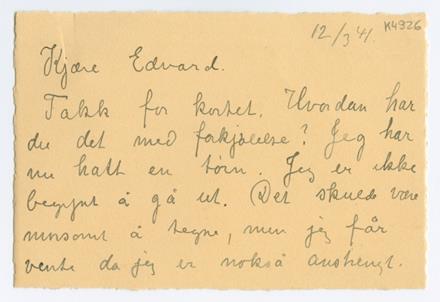 12/3 41. K4326
Kjære Edvard.
Takk for kortet. Hvordan har
du det med forkjølelse? Jeg har
nu hatt en tørn. Jeg er ikke
begynt å gå ut. Det skulde være
morsomt å tegne, men jeg får
vente da jeg er nokså anstrengt.